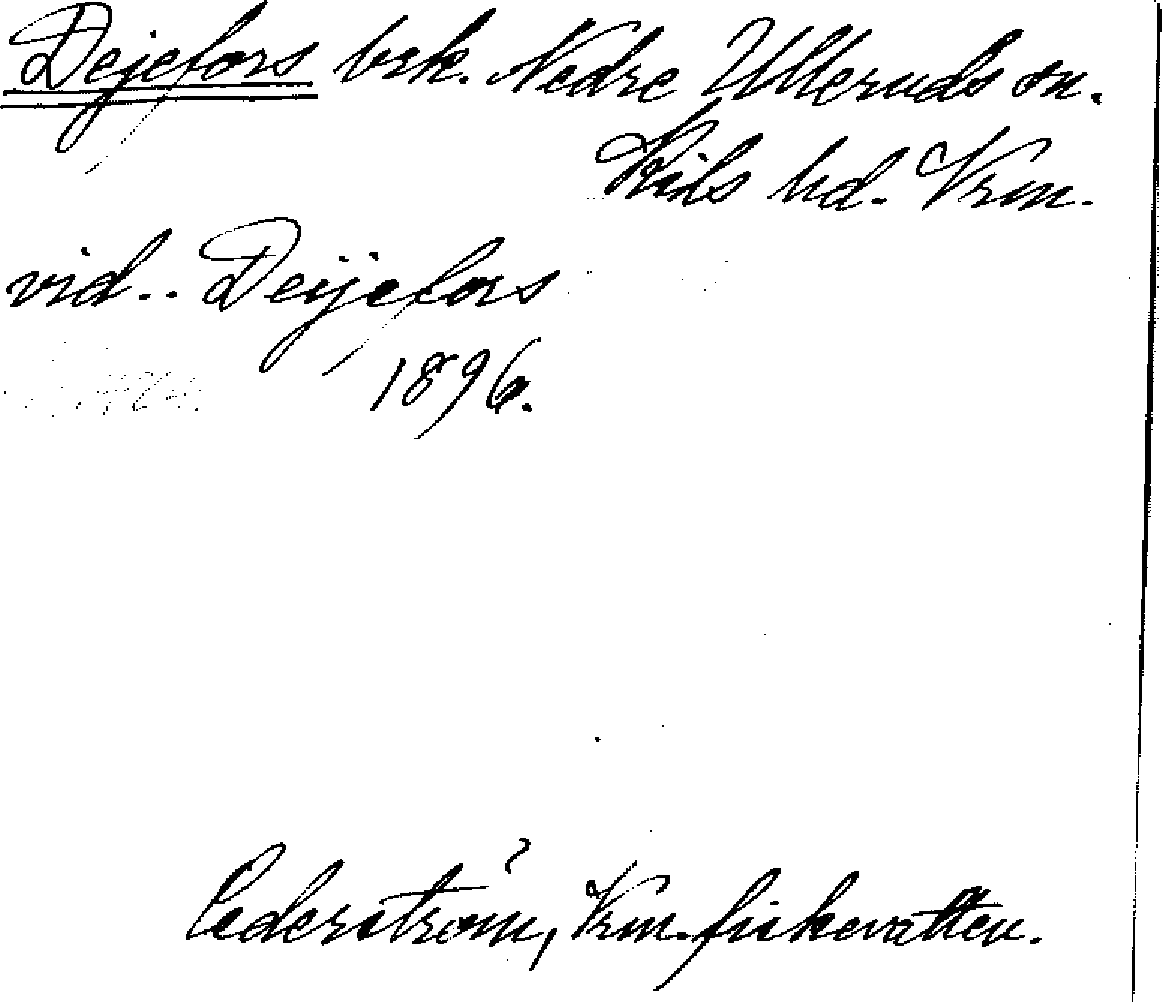 Dejefors brk. Nedre Ulleruds sn.
Kils hd. Vrm.
vid.. Deijefors
1896.
Cederström, Vrm. fiskevatten.